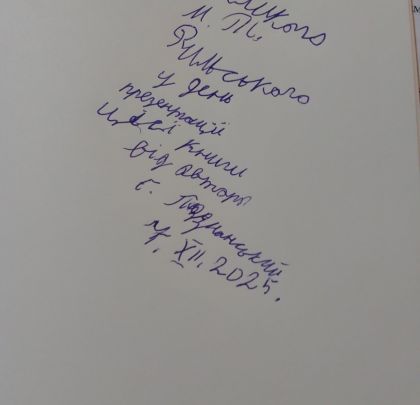 М. Т.
Рильського
у день
презентації
цієї книги
від автора
Є. Познанський
XII. 2025.